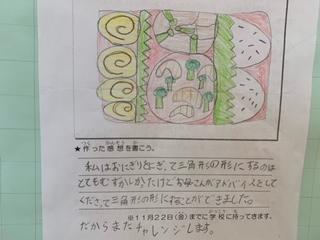 ★作った感想を書こう。
私はおにぎりをにぎって三角形の形にするのは
とてもむずかしかったけどお母さんがアドバイスをして
くださって三角形の形にすることができました。
※11月22日(金)までに学校に持ってきます。
だからまたチャレンジします。